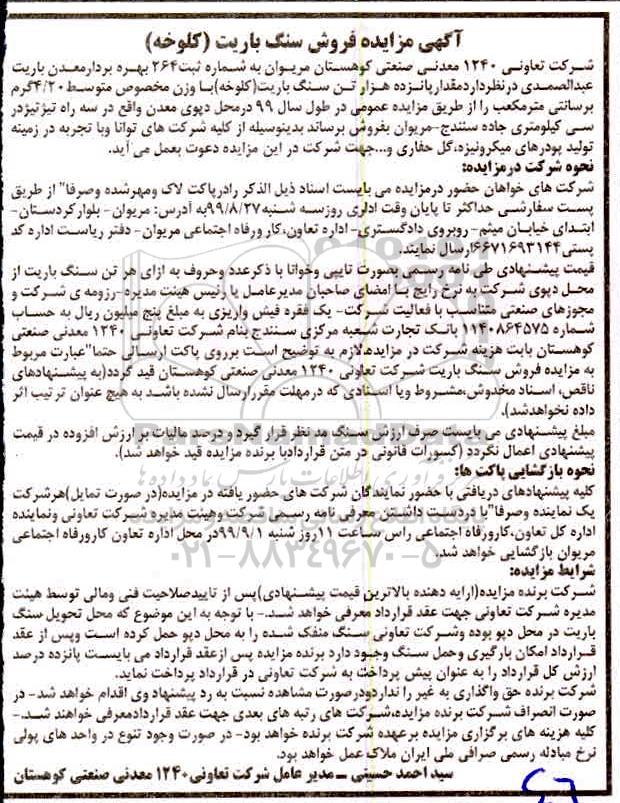 آگهی مزایده فروش سنگ باریت (کلوخه)
شرکت تعاونی ۱۲۴۰ معدنی صنعتی کوهستان مریوان به شماره ثبت۲۶۴ بهره بردارمعدن باریت
عبدالصمدی درنظرداردمقدارپانزده هزار تن سنگ باریت(کلوخه)با وزن مخصوص متوسط۴/۲۰گرم
برسانتی مترمکعب را از طریق مزایده عمومی در طول سال ۹۹ درمحل دپوی معدن واقع در سه راه تیژتیژدر
سی کیلومتری جاده سنندج-مریوان بفروش برساند بدینوسیله از کلیه شرکت های توانا وبا تجربه در زمینه
تولید پودرهای میکرونیزه،گل حفاری و...جهت شرکت در این مزایده دعوت بعمل می آید.
نحوه شرکت درمزایده:
شرکت های خواهان حضور درمزایده می بایست اسناد ذیل الذکر رادرپاکت لاک ومهرشده وصرفا" از طریق
پست سفارشی حداکثر تا پایان وقت اداری روزسه شنبه۹۹/۸/۲۷به آدرس: مریوان- بلوارکردستان-
ابتدای خیابان میثم- روبروی دادگستری- اداره تعاون،کار ورفاه اجتماعی مریوان- دفتر ریاست اداره کد
پستی۶۶۷۱۶۹۳۱۴۴ارسال نمایند.
قیمت پیشنهادی طی نامه رسمی بصورت تایپی وخوانا با ذکرعدد وحروف به ازای هر تن سنگ باریت از
محل دپوی شرکت به نرخ رایج با امضای صاحبان مدیرعامل یا رئیس هیئت مدیره-رزومه ی شرکت و
مجوزهای صنعتی متناسب با فعالیت شرکت- یک فقره فیش واریزی به مبلغ پنج میلیون ریال به حساب
شماره ۱۱۴۰۸۶۴۵۷۵ بانک تجارت شعبه مرکزی سنندج بنام شرکت تعاونی ۱۲۴۰ معدنی صنعتی
کوهستان بابت هزینه شرکت در مزایده.لازم به توضیح است برروی پاکت ارسالی حتما"عبارت مربوط
به مزایده فروش سنگ باریت شرکت تعاونی ۱۲۴۰ معدنی صنعتی کوهستان قید گردد(به پیشنهادهای
ناقص، اسناد مخدوش،مشروط ویا اسنادی که درمهلت مقررارسال نشده باشد به هیچ عنوان ترتیب اثر
داده نخواهدشد).
مبلغ پیشنهادی می بایست صرف ارزش سنگ مد نظر قرار گیرد و درصد مالیات بر ارزش افزوده در قیمت
پیشنهادی اعمال نگردد (کسورات قانونی در متن قراردادبا برنده مزایده قید خواهد شد).
نحوه بازگشایی پاکت ها:
کلیه پیشنهادهای دریافتی با حضور نمایندگان شرکت های حضور یافته در مزایده(در صورت تمایل)هرشرکت
یک نماینده وصرفا"با دردست داشتن معرفی نامه رسمی شرکت وهیئت مدیره شرکت تعاونی ونماینده
اداره کل تعاون،کارورفاه اجتماعی راس ساعت ۱۱روز شنبه ۹۹/۹/۱درمحل اداره تعاون کارورفاه اجتماعی
مریوان بازگشایی خواهد شد.
شرایط مزایده:
شرکت برنده مزایده(ارایه دهنده بالاترین قیمت پیشنهادی)پس از تاییدصلاحیت فنی ومالی توسط هیئت
مدیره شرکت تعاونی جهت عقد قرارداد معرفی خواهد شد.- با توجه به این موضوع که محل تحویل سنگ
باریت در محل دپو بوده وشرکت تعاونی سنگ منفک شده را به محل دپو حمل کرده است وپس از عقد
قرارداد امکان بارگیری وحمل سنگ وجود دارد برنده مزایده پس ازعقد قرارداد می بایست پانزده درصد
ارزش کل قرارداد را به عنوان پیش پرداخت به شرکت تعاونی در قرارداد پرداخت نماید.
شرکت برنده حق واگذاری به غیر را نداردودرصورت مشاهده نسبت به رد پیشنهاد وی اقدام خواهد شد- در
صورت انصراف شرکت برنده مزایده،شرکت های رتبه های بعدی جهت عقد قراردادمعرفی خواهند شد.-
کلیه هزینه های برگزاری مزایده برعهده شرکت برنده خواهد بود- در صورت وجود تنوع در واحد های پولی
نرخ مبادله رسمی صرافی ملی ایران ملاک عمل خواهد بود.
سید احمد حسینی ــ مدیر عامل شرکت تعاونی۱۲۴۰ معدنی صنعتی کوهستان
ParsNamadData
۰۲۱-۸۸۳۴۹۶۷۰-۵